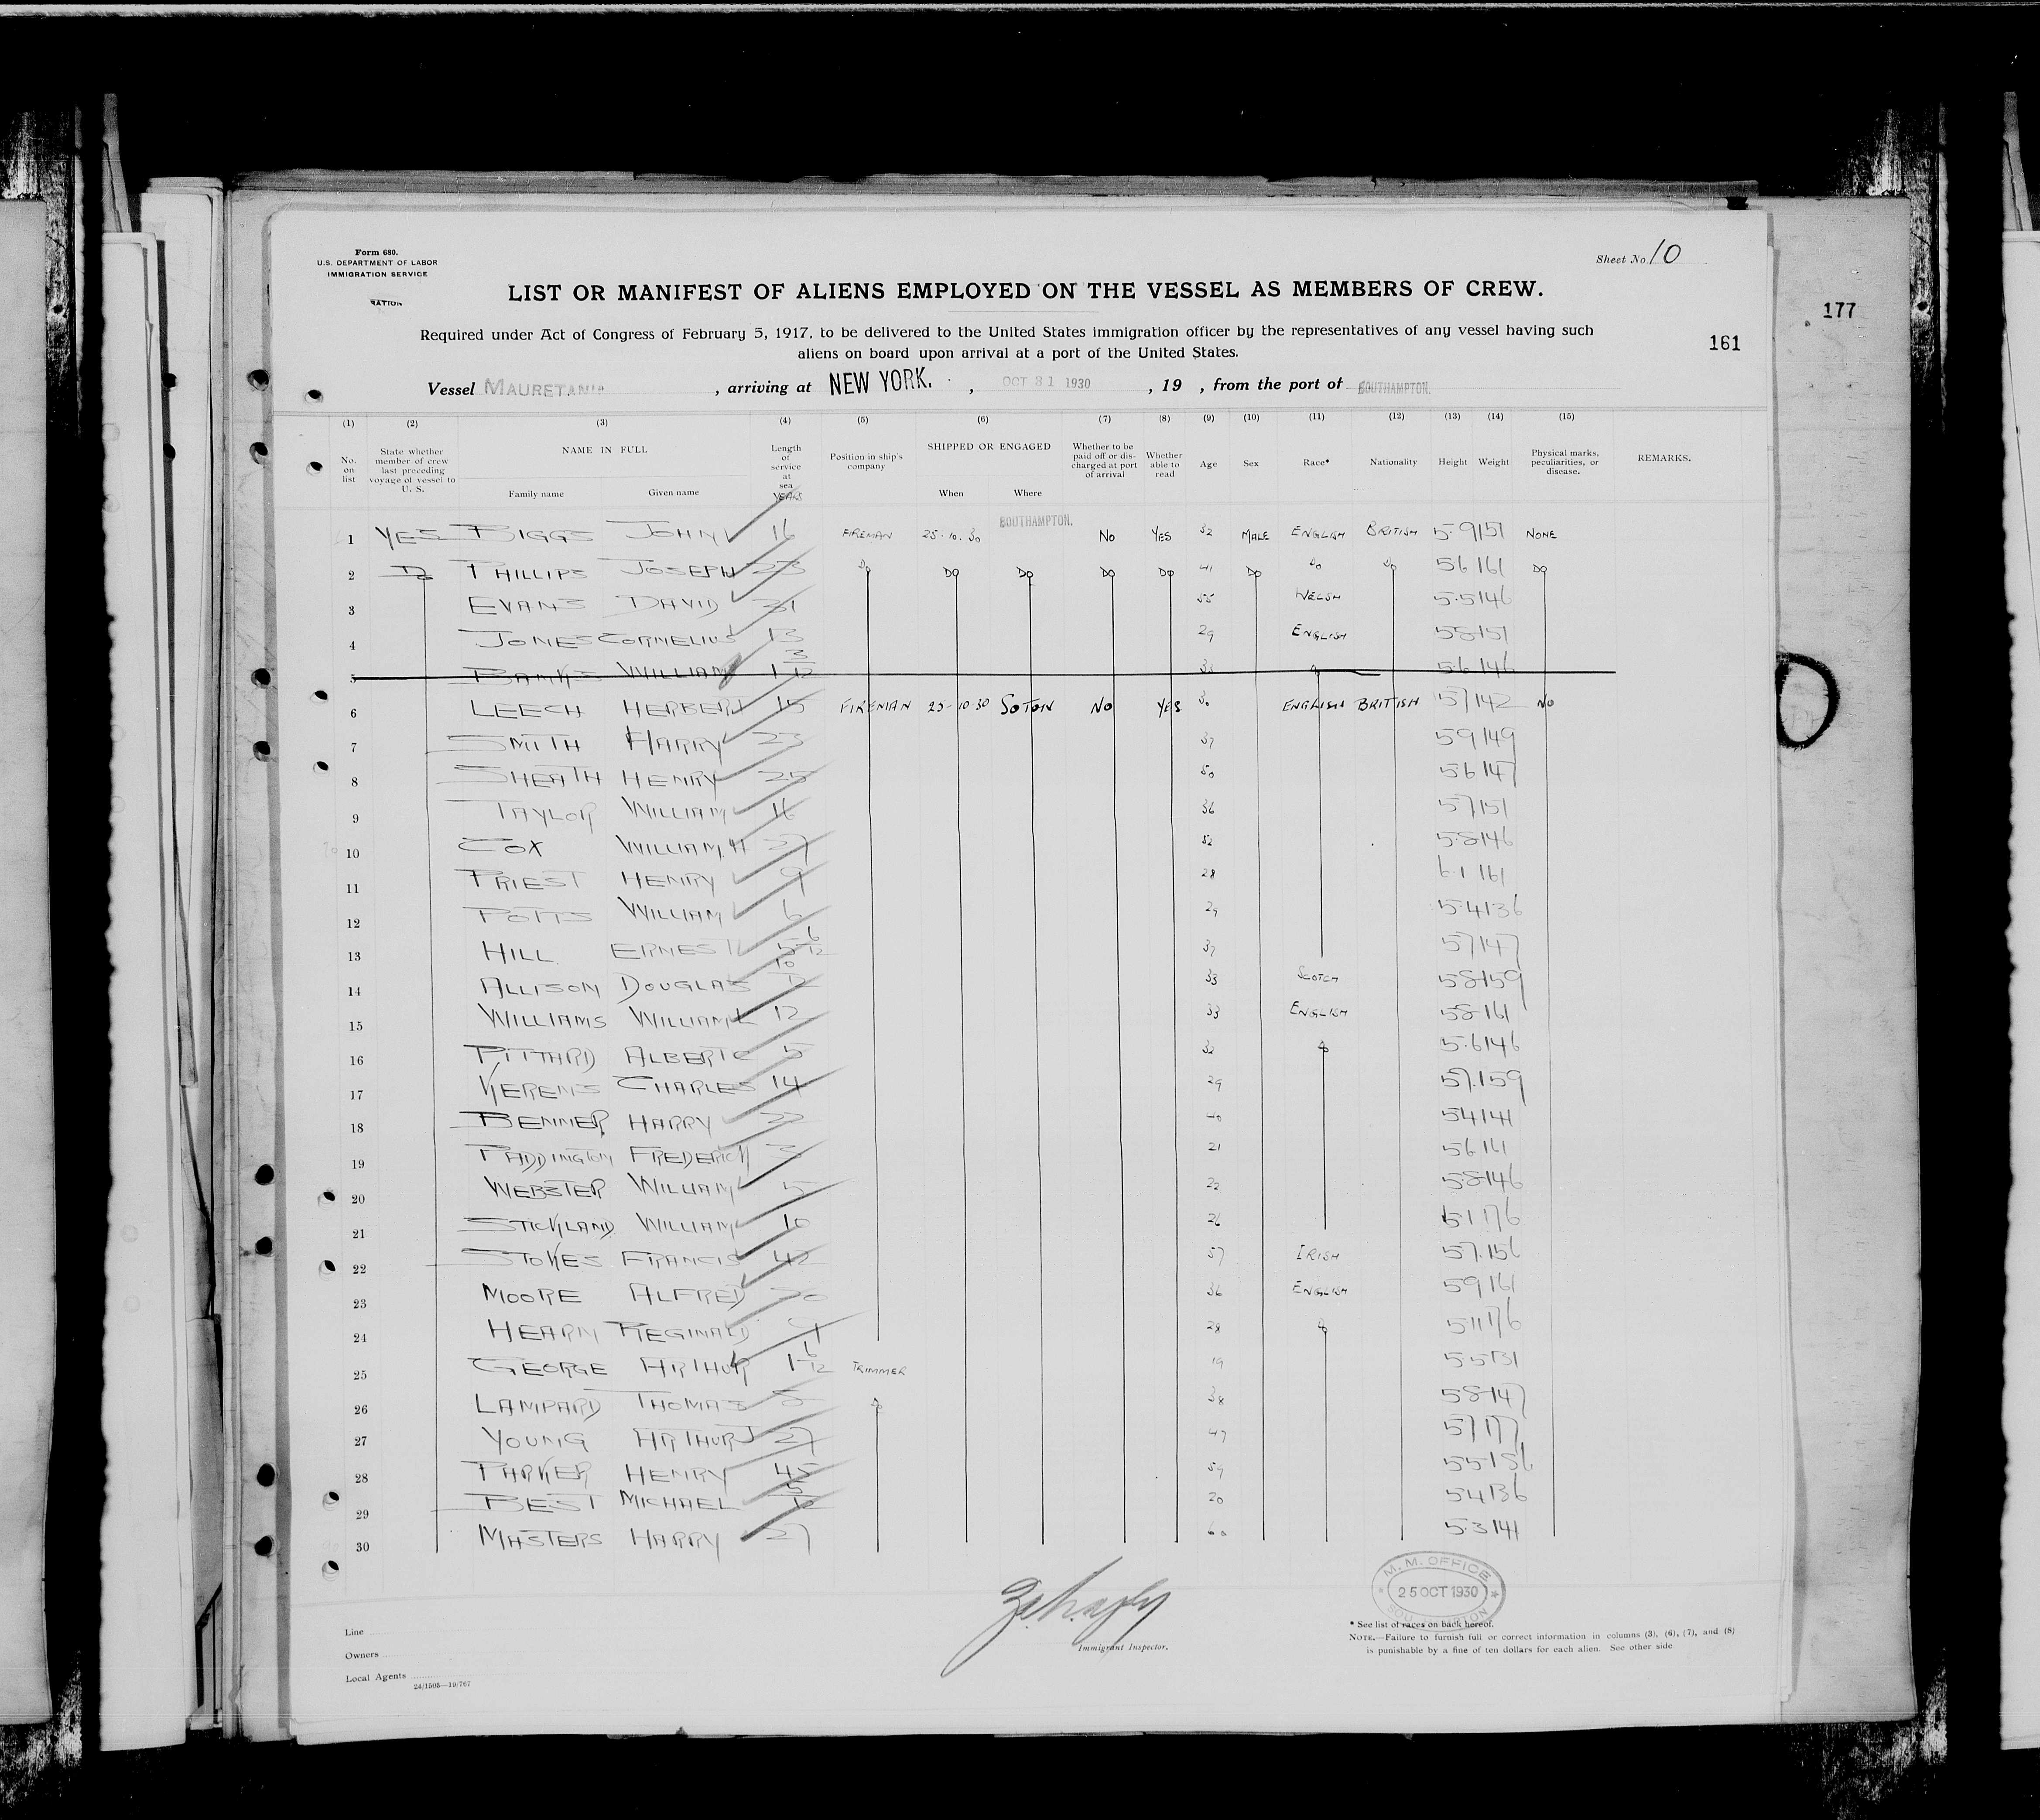 Form 680.
U.S. DEPARTMENT OF LABOR
IMMIGRATION SERVICE
RATION
Sheet No. 10
LIST OR MANIFEST OF ALIENS EMPLOYED ON THE VESSEL AS MEMBERS OF CREW.
177
Required under Act of Congress of February 5, 1917, to be delivered to the United States immigration officer by the representatives of any vessel having such
aliens on board upon arrival at a port of the United States.
161
Vessel MAURETANIA, arriving at NEW YORK. , OCT 31 1930 , 19 , from the port of SOUTHAMPTON.
(1) (2) (3) (4) (5) (6) (7) (8) (9) (10) (11) (12) (13) (14) (15)
No. on list State whether member of crew last preceding voyage of vessel to U. S. NAME IN FULL Family name Given name Length of service at sea YEARS Position in ship's company SHIPPED OR ENGAGED When Where Whether to be paid off or discharged at port of arrival Whether able to read Age Sex Race* Nationality Height Weight Physical marks, peculiarities, or disease. REMARKS.
1 YES BIGGS JOHN 16 FIREMAN 25.10.30 SOUTHAMPTON. NO YES 32 MALE ENGLISH BRITISH 5.9 151 NONE
2 DO PHILLIPS JOSEPH 23 DO DO DO DO DO 41 DO DO DO 5 6 161 DO
3 EVANS DAVID 31 55 WELSH 5.5 146
4 JONES CORNELIUS 13 29 ENGLISH 5 8 151
5 BANKS WILLIAM 1 3/12 33 5 6 146
6 LEECH HERBERT 15 FIREMAN 25-10 30 SOTON NO YES 30 ENGLISH BRITISH 5 7 142 NO
7 SMITH HARRY 23 37 5 9 149
8 SHEATH HENRY 25 50 5 6 147
9 TAYLOR WILLIAM 16 36 5 7 151
10 COX WILLIAM. H 37 52 5.8 146
11 PRIEST HENRY 9 28 6.1 161
12 POTTS WILLIAM 6 29 5.4 136
13 HILL. ERNEST 5 6/12 37 5 7 147
14 ALLISON DOUGLAS 10/12 33 SCOTCH 5 8 159
15 WILLIAMS WILLIAM 12 33 ENGLISH 5 8 161
16 PITTARD ALBERT C 5 32 5.6 146
17 KERENS CHARLES 14 29 5 7.159
18 BENNER HARRY 22 40 5 4 141
19 PADDINGTON FREDERICK 3 21 5 6 161
20 WEBSTER WILLIAM 5 22 5 8 146
21 STICKLAND WILLIAM 10 26 5 11 76
22 STOKES FRANCIS 42 57 IRISH 5 7.156
23 MOORE ALFRED 20 36 ENGLISH 5 9 161
24 HEARN REGINALD 9 28 5 11 176
25 GEORGE ARTHUR 1 6/12 TRIMMER 19 5 5 131
26 LAMPARD THOMAS 5 38 5 8 147
27 YOUNG ARTHUR J 27 47 5 7 177
28 PARKER HENRY 45 59 5 5 156
29 BEST MICHAEL 5/12 20 5 4 136
30 MASTERS HARRY 27 60 5.3 141
M. M. OFFICE
25 OCT 1930
SOUTHAMPTON
Immigrant Inspector.
* See list of races on back hereof.
NOTE.—Failure to furnish full or correct information in columns (3), (6), (7), and (8)
is punishable by a fine of ten dollars for each alien. See other side
Line
Owners
Local Agents
24/1505—19/767